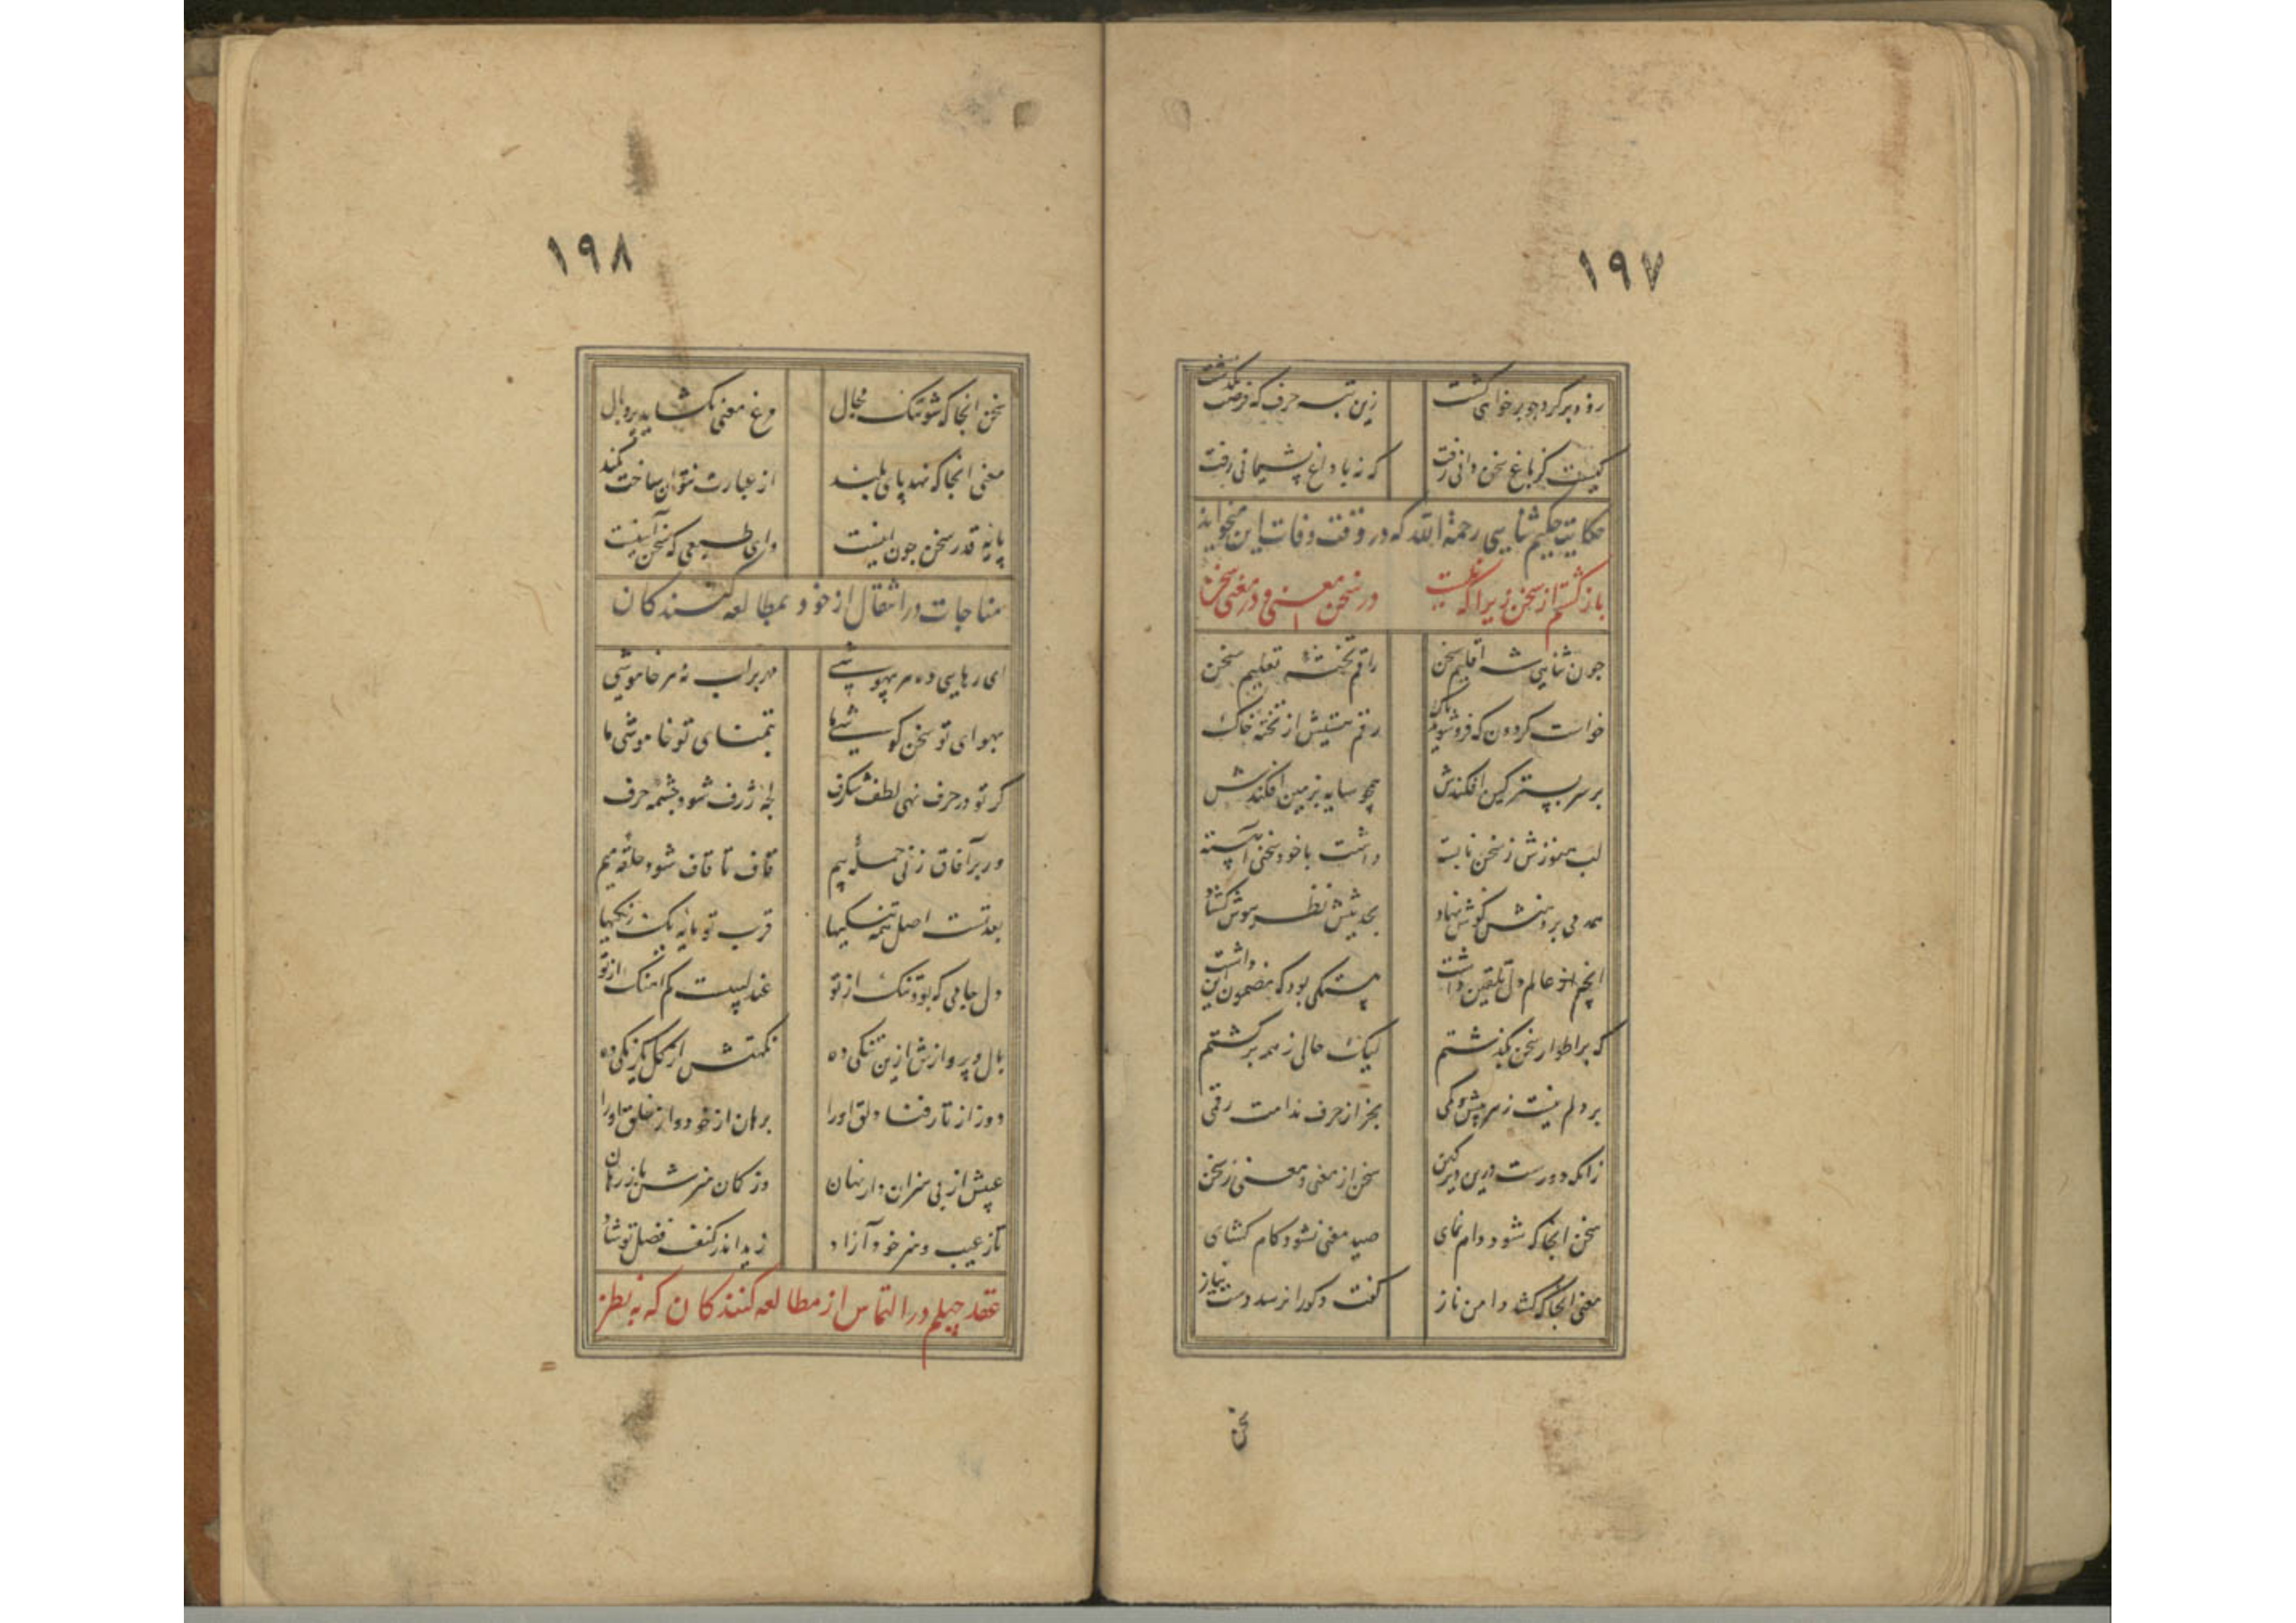 ۱۹۷
رو دبر گرد چو برخواهی گشت زین تبه حرف که فرصت بگذشت
کیست کز باغ سخن دانی رفت که نه با داغ پشیمانی رفت
حکایت حکیم ثنایی رحمة الله که در وقت وفات این میخواند
باز گشتم از سخن زیرا که نیست در سخن معنی و در معنی سخن
جون ثنایی شه اقلیم سخن راقم تخته تعلیم سخن
خواست کردون که فرو شوید پاک رقم هستیش از تخته خاک
بر سر بستر کین افکندش همچو سایه بزمین افکندش
لب هنوزش ز سخن نابسته داشت با خود سخنی آهسته
همدمی بر دهنش گوش نهاد بحدیثش نظر هوش گشاد
آنچه از عالم دل تلقین داشت بیتکی بود که مضمون این داشت
که بر اطوار سخن بگذشتم لیک حالی ز همه برگشتم
بر دلم نیست ز هر بیش و کمی بجز از حرف ندامت رقمی
زانکه دورست درین دیر کهن سخن از معنی و معنی ز سخن
سخن آنجا که شود دام نمای صید معنی نشود کام گشای
معنی آنجا که کشد دامن ناز گفت و گو را نرسد دست نیاز
سخن
۱۹۸
سخن آنجا که شود تنگ مجال مرغ معنی نگشاید پر و بال
معنی آنجا که نهد پای بلند از عبارت نتوان ساخت کمند
پایه قدر سخن جون اینست وای طبعی که سخن آیینست
مناجات در انتقال از خود بمطالعه کنندکان
ای رهایی ده هر بیهوشی مهر بر لب نه هر خاموشی
بهوای تو سخن کوشیها بتمنای تو خاموشیها
گر تو در حرف نهی لطف شگرف لجه ژرف شود چشمه حرف
ور بر آفاق زنی حمله بیم قاف تا قاف شود حلقه میم
بعد تست اصل همه تنگیها قرب تو مایه یک رنگیها
دل جامی که بود تنگ از تو عندلیبیست کم آهنگ از تو
بال پروازش ازین تنگی ده نکهتش از گل یکرنگی ده
دوز از تار فنا دلق او را برهان از خود و از خلق او را
عیبش از بی هنران دار نهان وز گمان هنرش باز رهان
تا ز عیب و هنر خود آزاد زید اندر کنف فضل تو شاد
عقد چهلم در التماس از مطالعه کنندکان که به نظر